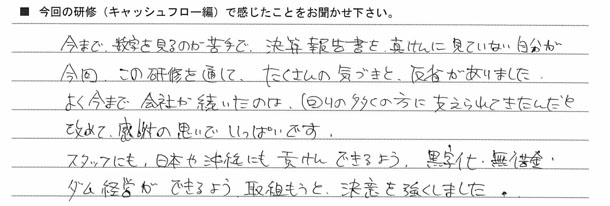 ■ 今回の研修（キャッシュフロー編）で感じたことをお聞かせ下さい。
今まで、数字を見るのが苦手で、決算報告書を、真けんに見ていない自分が
今回、この研修を通して、たくさんの気づきと、反省がありました。
よく今まで会社が続いたのは、回りの多くの方に支えられてきたんだと
改めて、感謝の思いでいっぱいです。
スタッフにも、日本や沖縄にも貢けんできるよう、黒字化・無借金・
ダム経営ができるよう、取組もうと、決意を強くしました。